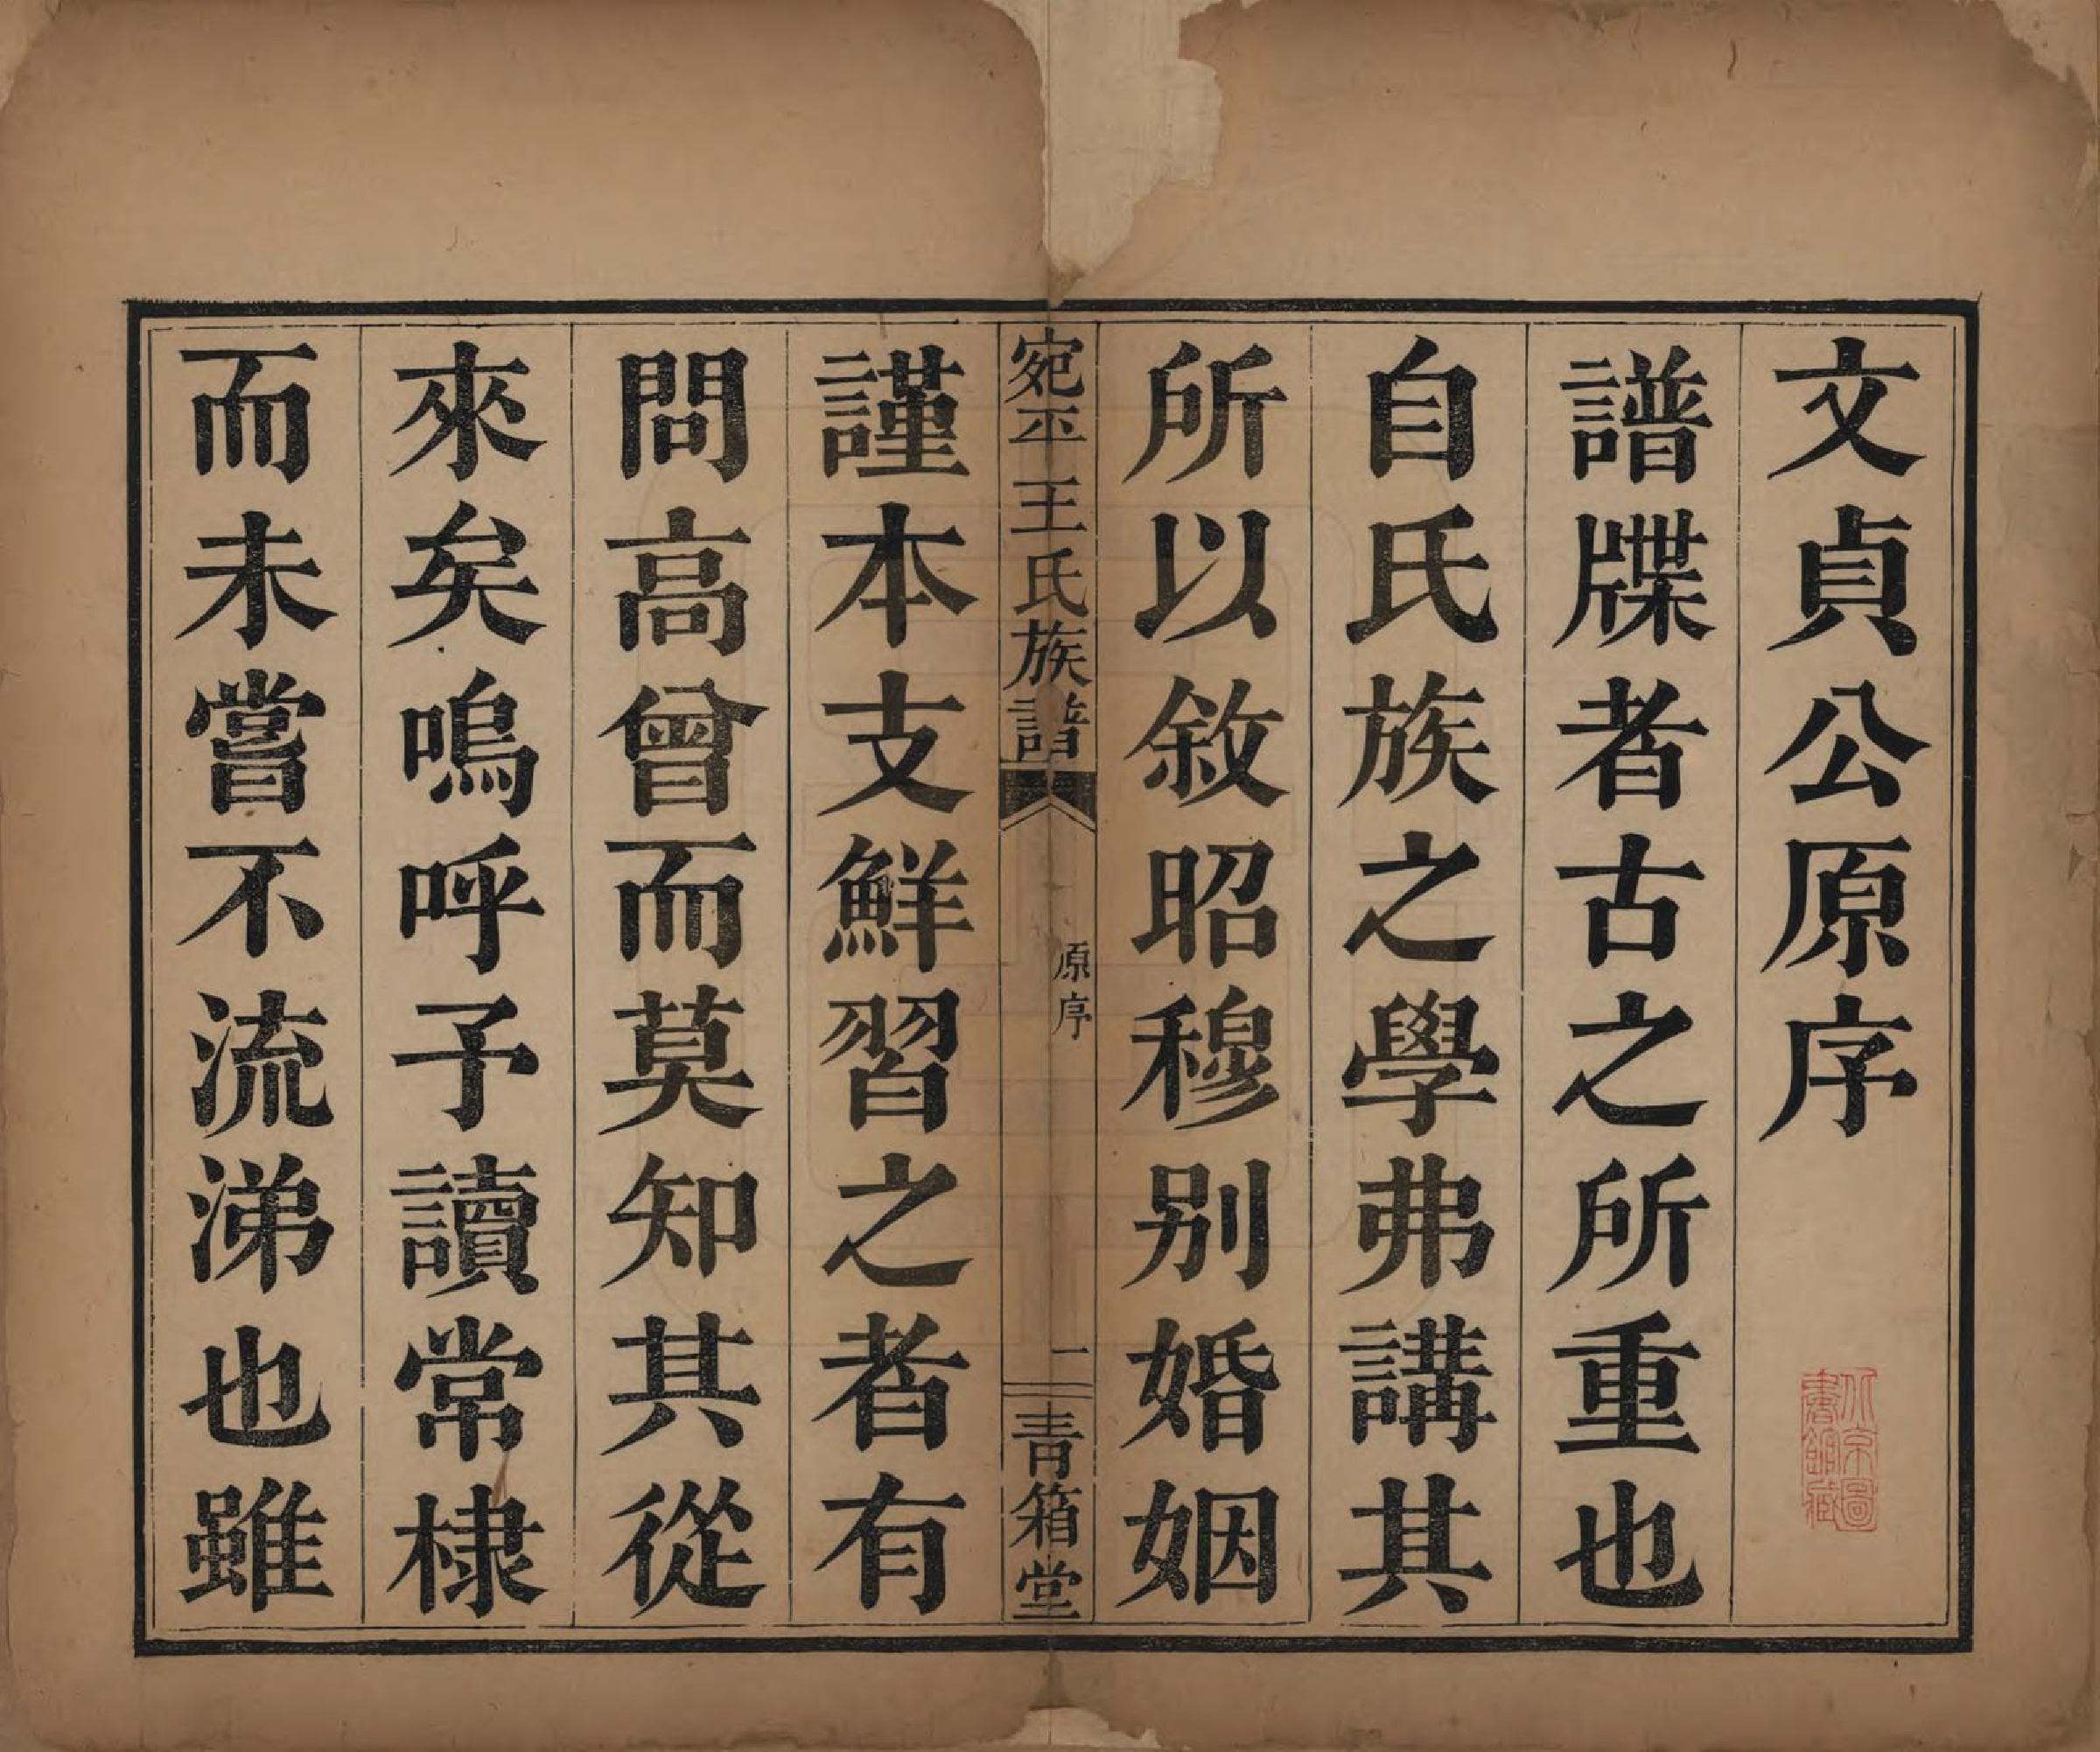 文貞公原序
譜牒者古之所重也
自氏族之學弗講其
所以敘昭穆別婚姻
宛平王氏族譜
原序
一
青箱堂
謹本支鮮習之者有
問高曾而莫知其從
來矣嗚呼予讀常棣
而未嘗不流涕也雖
北京圖
書館藏